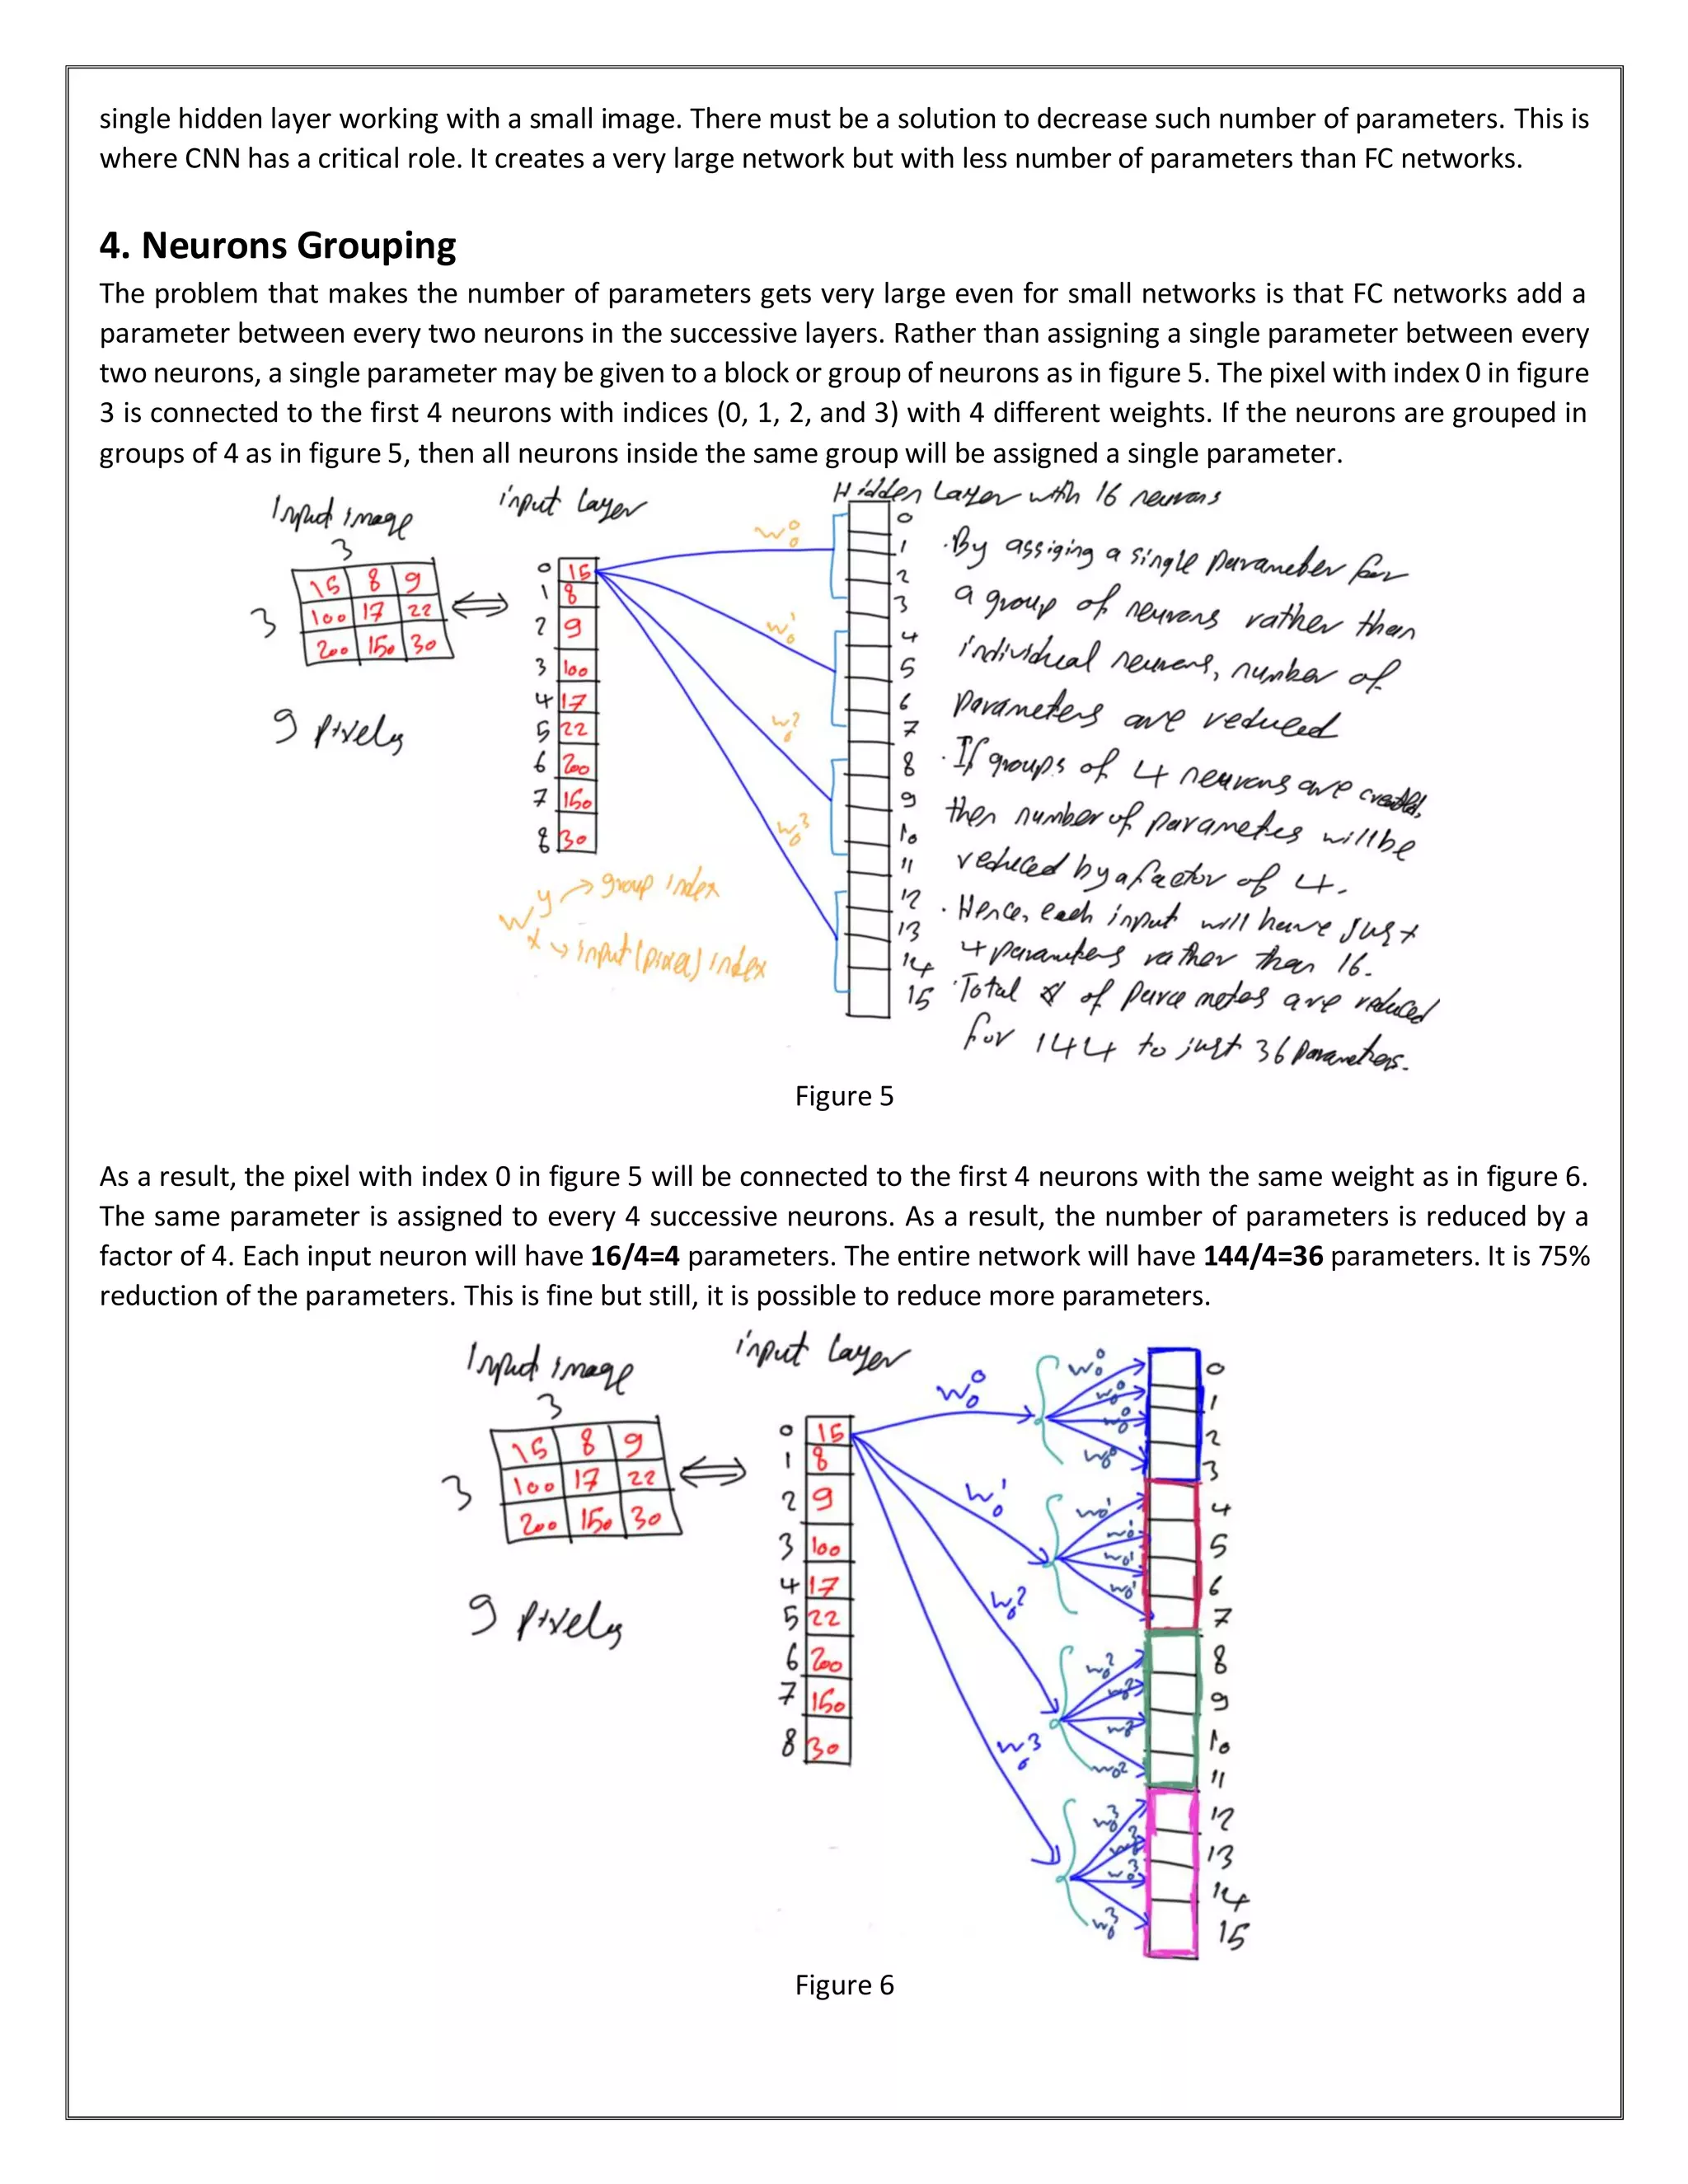 single hidden layer working with a small image. There must be a solution to decrease such number of parameters. This is
where CNN has a critical role. It creates a very large network but with less number of parameters than FC networks.
4. Neurons Grouping
The problem that makes the number of parameters gets very large even for small networks is that FC networks add a
parameter between every two neurons in the successive layers. Rather than assigning a single parameter between every
two neurons, a single parameter may be given to a block or group of neurons as in figure 5. The pixel with index 0 in figure
3 is connected to the first 4 neurons with indices (0, 1, 2, and 3) with 4 different weights. If the neurons are grouped in
groups of 4 as in figure 5, then all neurons inside the same group will be assigned a single parameter.
Input image
3
15 8 9
3
100 17 22
200 150 30
9 pixels
input layer
0 15
1 8
2 9
3 100
4 17
5 22
6 200
7 150
8 30
w0 0
w0 1
w0 2
w0 3
w y → group index
x → input (pixel) index
Hidden Layer with 16 neurons
0
1
2
3
4
5
6
7
8
9
10
11
12
13
14
15
. By assiging a single parameter for
a group of neurons rather than
individual neurons, number of
parameters are reduced
. If groups of 4 neurons are created,
then number of parametes will be
reduced by a factor of 4.
. Hence, each input will have just
4 parameters rather than 16.
. Total # of parameters are reduced
for 144 to just 36 parameters.
Figure 5
As a result, the pixel with index 0 in figure 5 will be connected to the first 4 neurons with the same weight as in figure 6.
The same parameter is assigned to every 4 successive neurons. As a result, the number of parameters is reduced by a
factor of 4. Each input neuron will have 16/4=4 parameters. The entire network will have 144/4=36 parameters. It is 75%
reduction of the parameters. This is fine but still, it is possible to reduce more parameters.
Input image
3
15 8 9
3
100 17 22
200 150 30
9 pixels
input layer
0 15
1 8
2 9
3 100
4 17
5 22
6 200
7 150
8 30
w0 0
w0 1
w0 2
w0 3
w0 0
w0 0
w0 0
w0 0
w0 1
w0 1
w0 1
w0 1
w0 2
w0 2
w0 2
w0 2
w0 3
w0 3
w0 3
w0 3
0
1
2
3
4
5
6
7
8
9
10
11
12
13
14
15
Figure 6